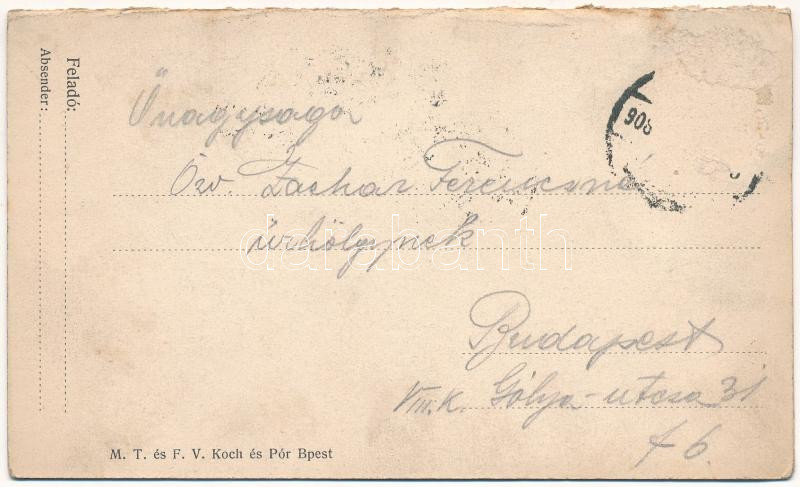 Feladó:
Absender:
Őnagysága
Özv. Zachar Ferencné
úrhölgynek
Budapest
VIII. k. Gólya-utcza 31
f 6.
908
darabanth
M. T. és F. V. Koch és Pór Bpest